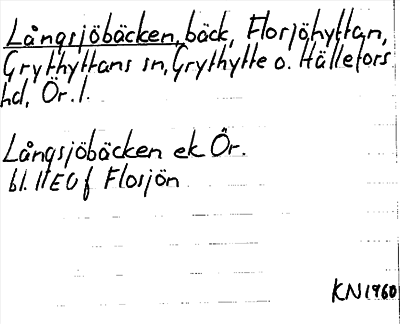 Långsjöbäcken, bäck, Florsjöhyttan,
Grythyttans sn, Grythytte o. Hällefors
hd, Ör. l.
Långsjöbäcken ek Ör.
bl. 11 EO f Flosjön
KN 1960